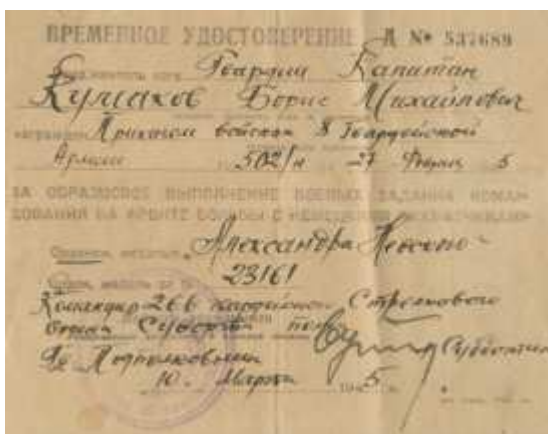 ВРЕМЕННОЕ УДОСТОВЕРЕНИЕ Д № 537689
Гвардии Капитан
Борис Михайлович
награжден Приказом войскам 8 Гвардейской
Армии 502/н 27 5
ЗА ОБРАЗЦОВОЕ ВЫПОЛНЕНИЕ БОЕВЫХ ЗАДАНИЙ КОМАН-
ДОВАНИЯ НА ФРОНТЕ БОРЬБЫ С НЕМЕЦКИМИ ЗАХВАТЧИКАМИ
Орденом, Александра Невского
23161
Командир 266 Стрелкового
Ордена Суворова
Гв. Подполковник
10. Марта 1945 г.